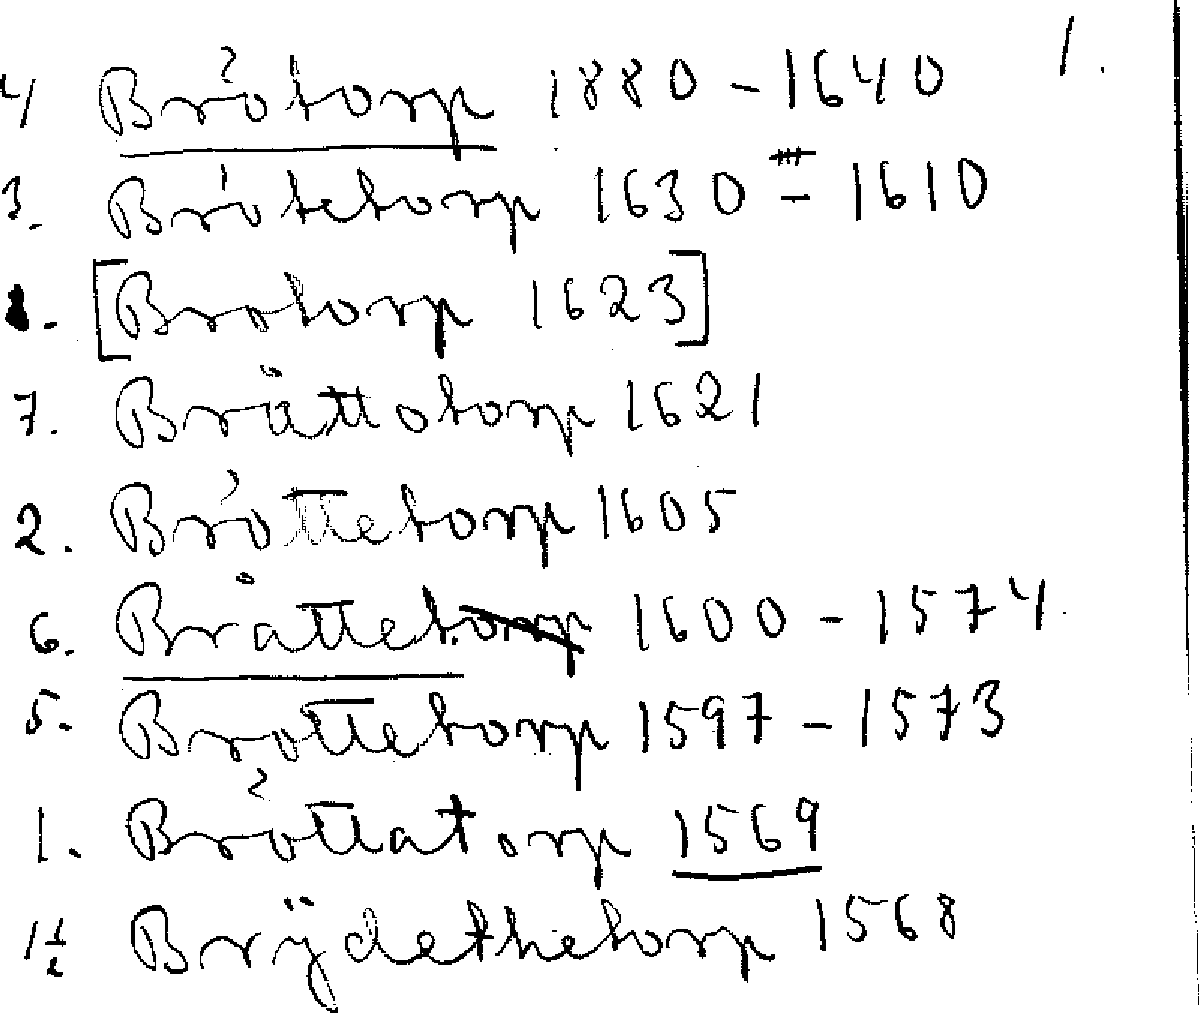 4 Brötorp 1880 - 1640 1.
3. Brötetorp 1630 - 1610
1. [Brotorp 1623]
7. Bråttotorp 1621
2. Bröttetorp 1605
6. Bråttetorp 1600 - 1574
5. Brottetorp 1597 - 1573
1. Bröttatorp 1569
1½ Brÿdethetorp 1568